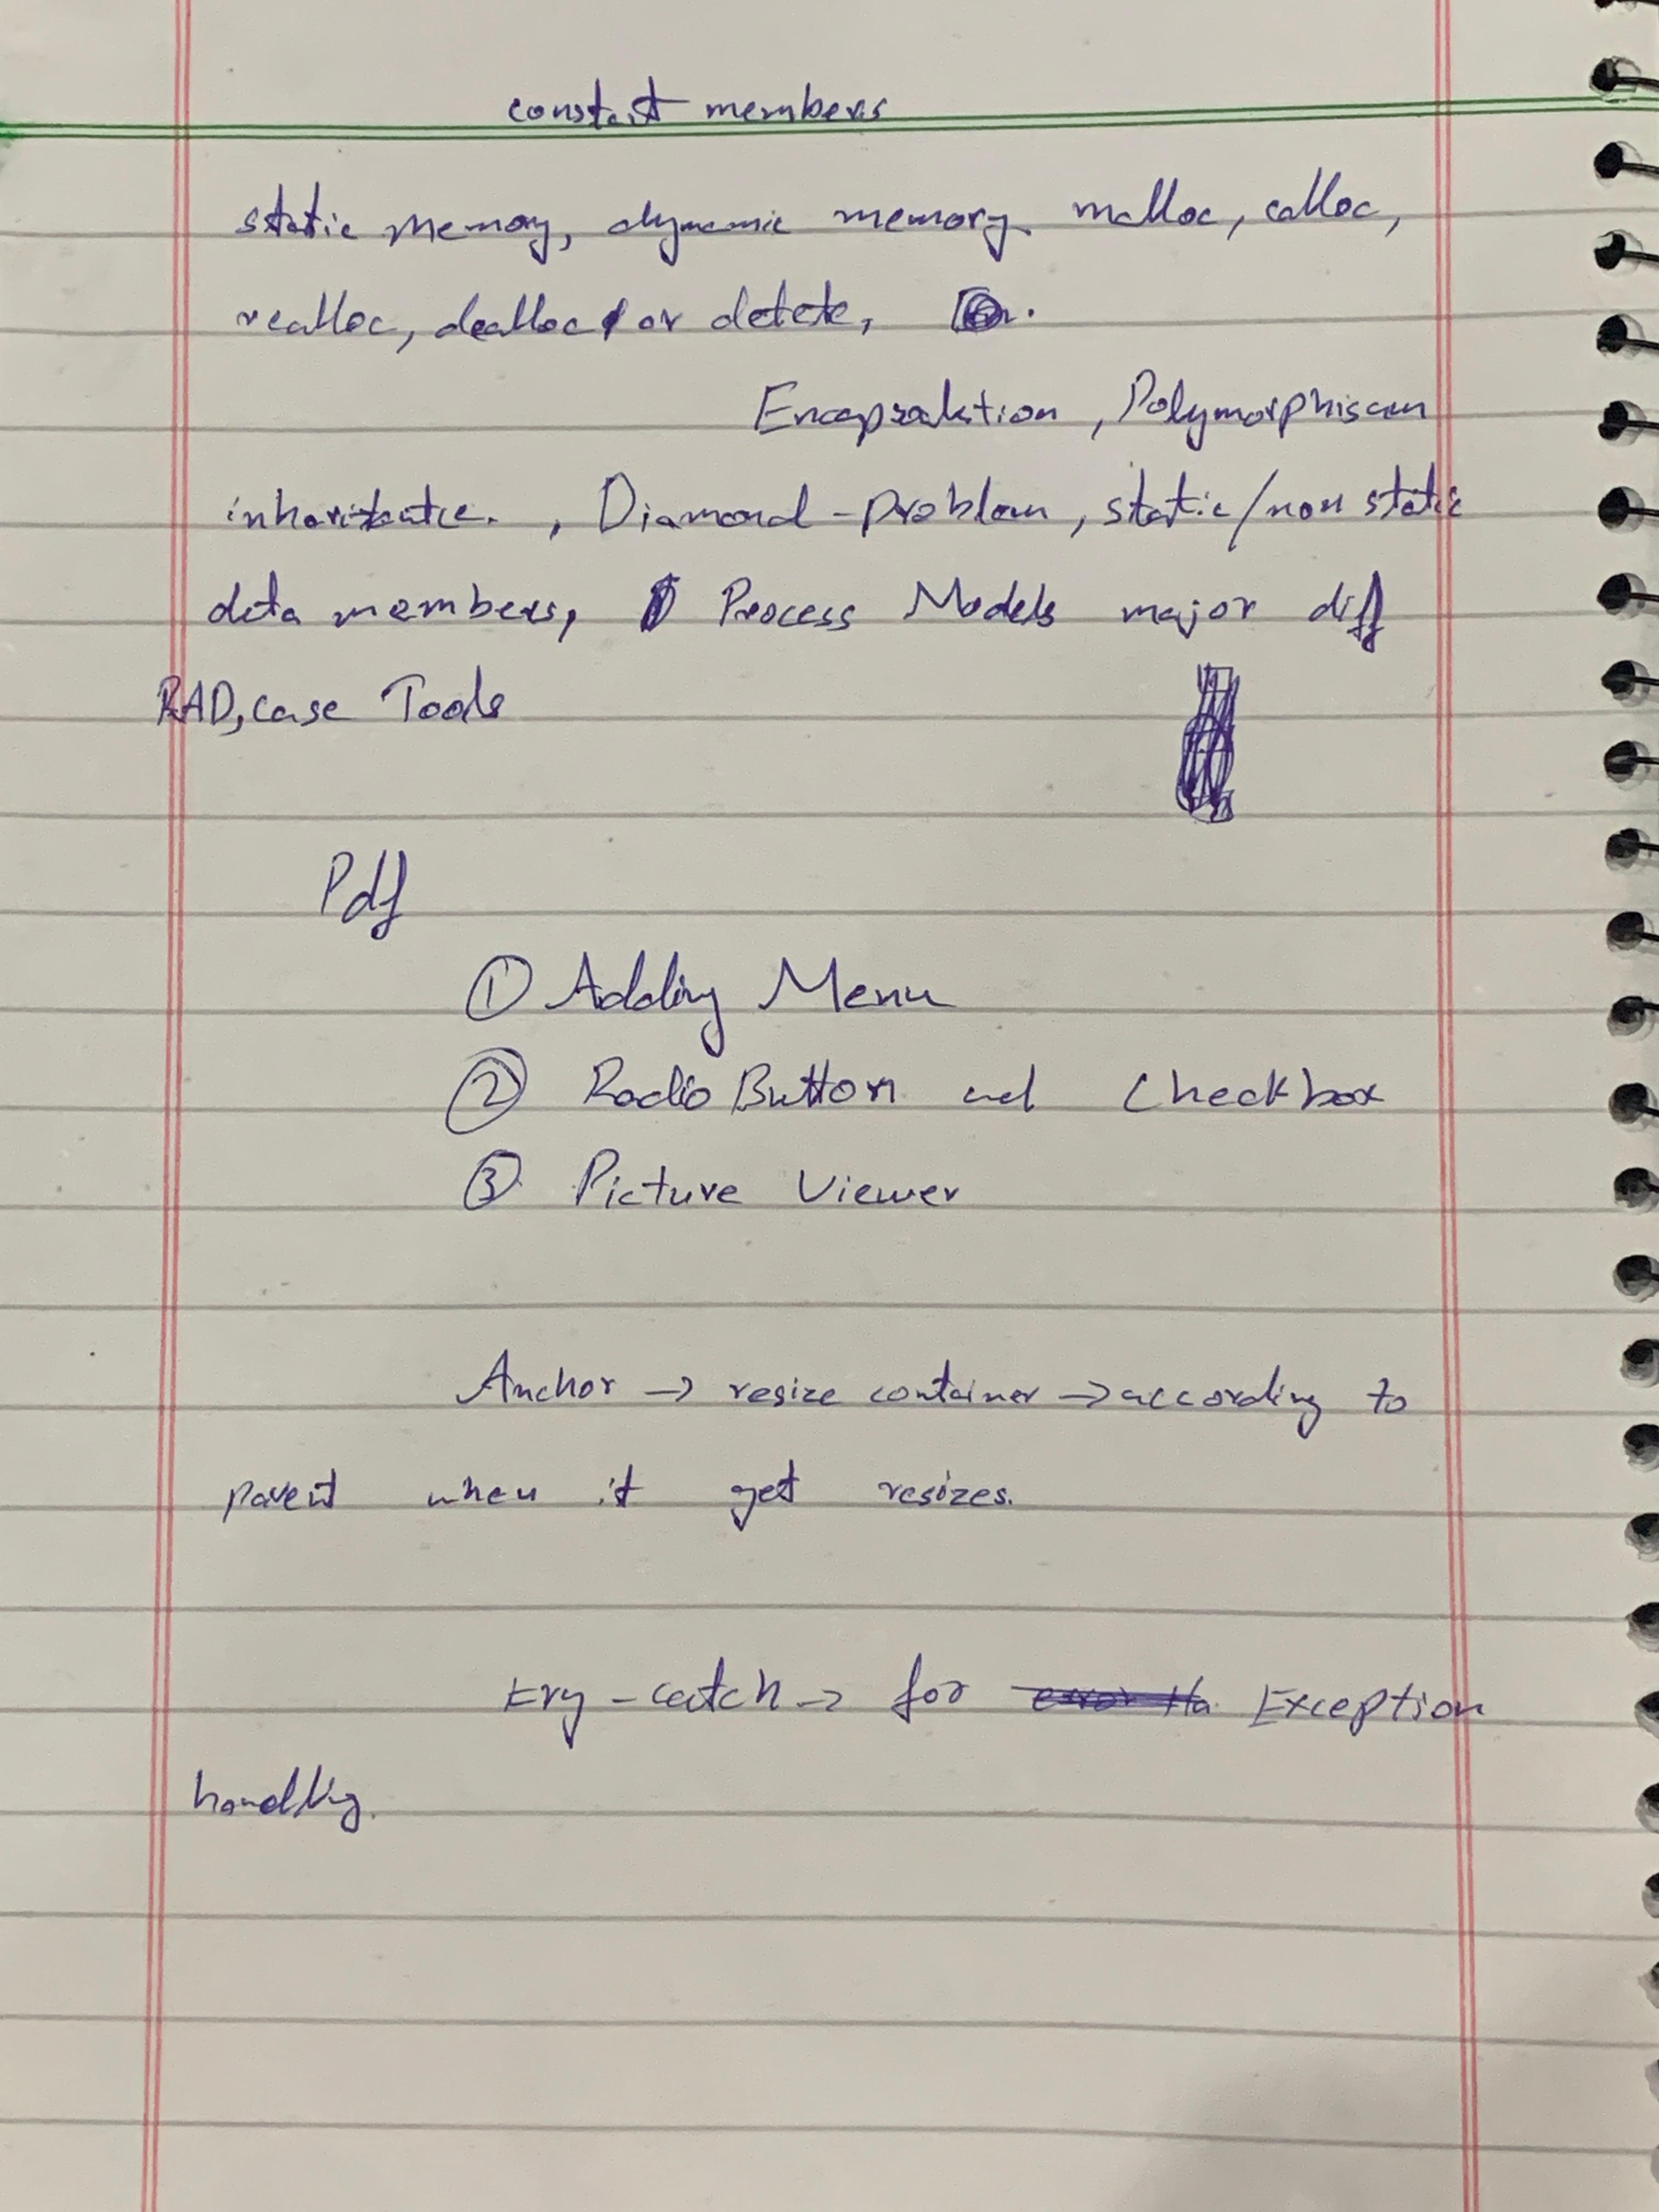 constant members
static memory, dynamic memory malloc, calloc,
realloc, dealloc or delete,
Encapsulation, Polymorphism
inheritance. , Diamond-problem, static/non static
data members, Process Models major diff
RAD, case Tools
Pdf
① Adding Menu
② Radio Button and Checkbox
③ Picture Viewer
Anchor → resize container → according to
parent when it get resizes.
try-catch → for Exception
handling.